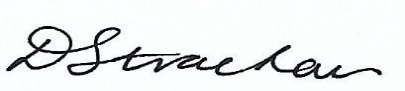 D Strachan